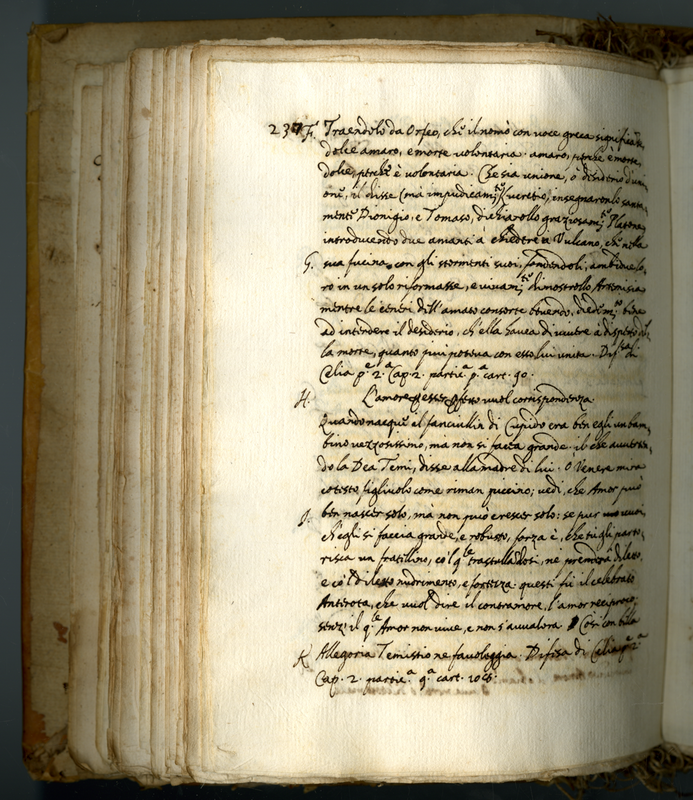 237 F. Traendolo da Orfeo, che il nomò con voce greca significan
dolce amaro, e morte volontaria. amaro, perche è morte,
dolce, perche è volontaria. Che sia unione, ò desiderio d'uni
one, il disse (mà impudicam.te) Lucretio, insegnaronlo santa
mente Dionigio, e Tomaso, dichiarollo graziosam.te Platone
introducendo due amanti à chiedere a Vulcano, che nella
G. sua fucina, con gli stormenti suoi, fondendoli, ambidue lo
ro in un solo riformasse, e vivam.te dimostrollo Artemisia
mentre le ceneri dell'amato consorte bevendo, diede bene
ad intendere il desiderio, ch'ella havea di vivere à dispetto del
la morte, quanto più poteva con esso lui unita. Difesa di
Celia p.e 2.a Cap. 2. partic.a p.a cart. 90.
H. L'amore esser vuol corrispondenza.
Quando nacque el fanciullin di Cupido era ben egli un bam
bino vezzosissimo, mà non si facea grande. il che avverten
do la Dea Temi, disse alla madre di lui. O Venere mira
cotesto figliuolo come riman piccino; vedi, che Amor può
ben nascer solo, mà non può crescer solo: se pur vuoi,
I. ch'egli si faccia grande, e robusto, forza è, che tu gli parto
risca un fratellino, co'l q.le trastullandosi, ne prenderà diletto
e co'l diletto nudrimento, e fortezza. questi fù il celebrato
Anterota, che vuol dire il contramore, l'amor reciproco,
senz'il q.le Amor non vive, e non s'avvalora. Così con bella
K Allegoria Temistio ne favoleggia. Difesa di Celia p.e 2.a
Cap. 2. partic.a 9.a cart.